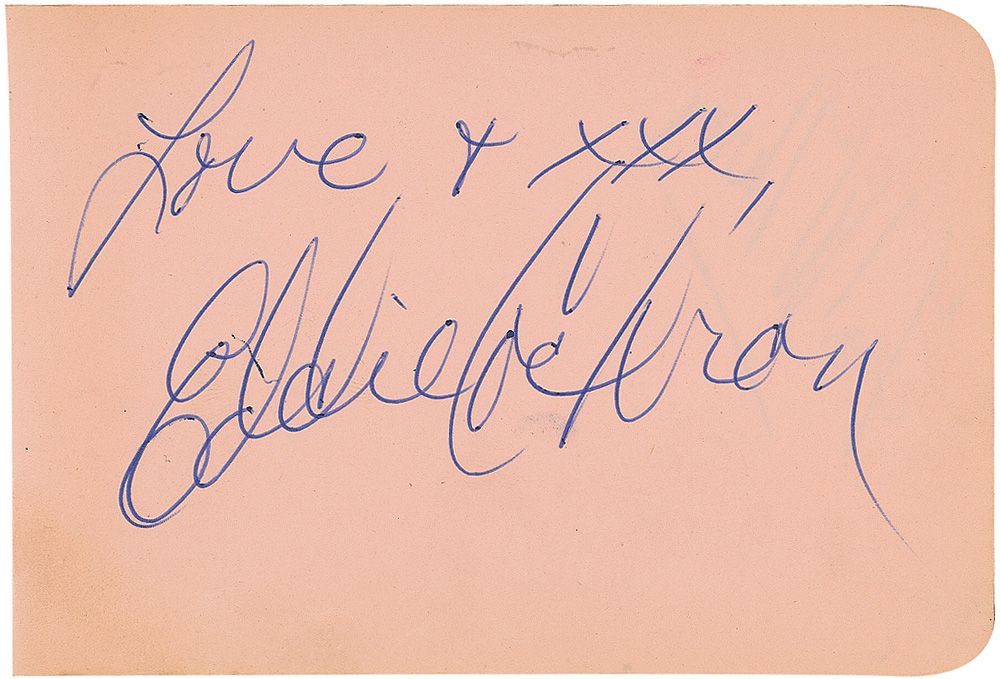 Love + xxx,
Eddie Cochran